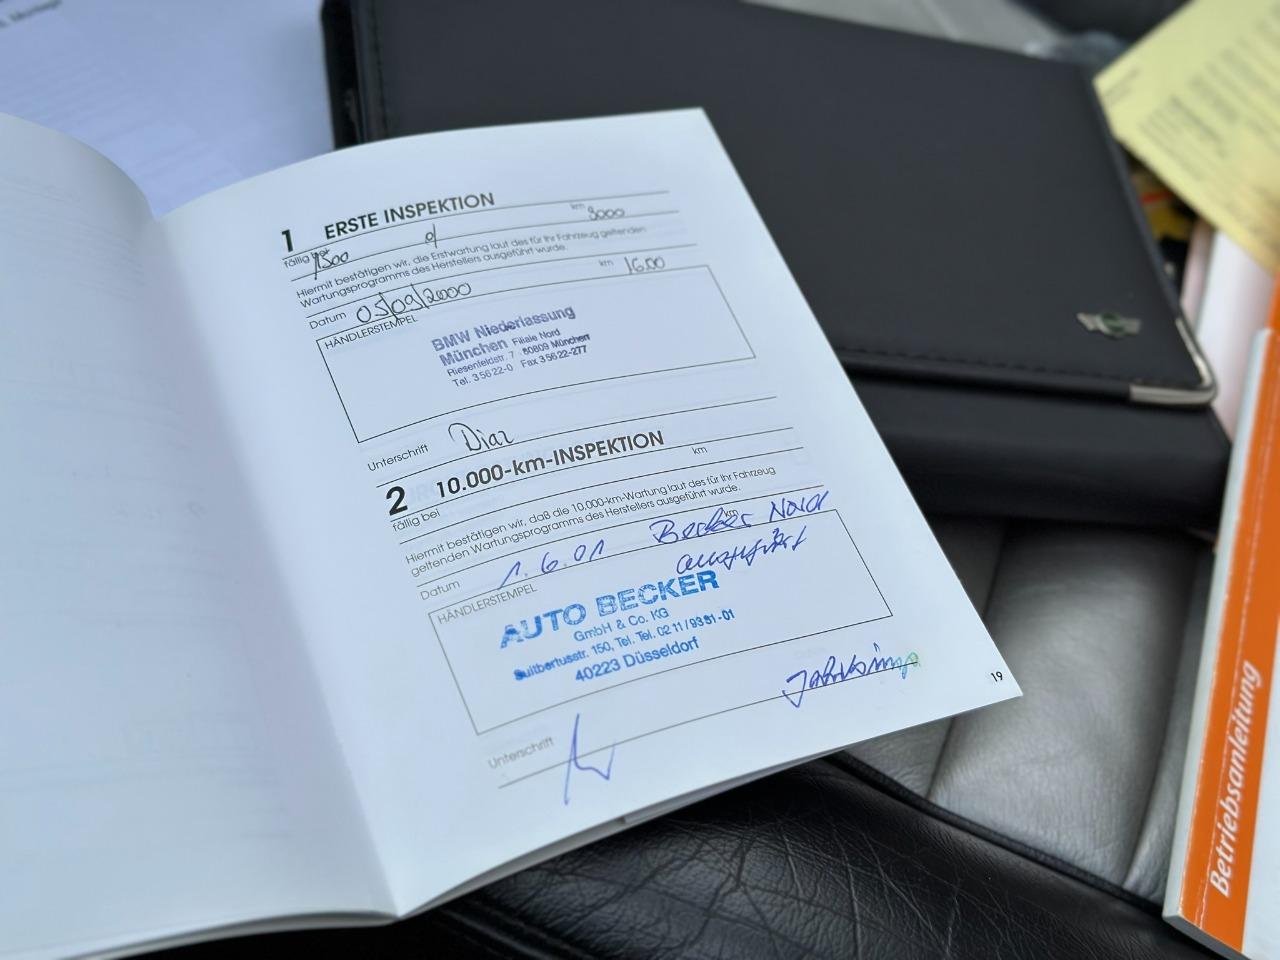 1 ERSTE INSPEKTION
fällig bei 1500 d km 3000
Hiermit bestätigen wir, die Erstwartung laut des für Ihr Fahrzeug geltenden
Wartungsprogramms des Herstellers ausgeführt wurde.
Datum 05/09/2000 km 1600
HÄNDLERSTEMPEL
BMW Niederlassung
München Filiale Nord
Riesenfeldstr. 7 · 80809 München
Tel. 35622-0 Fax 35622-277
Unterschrift Diaz
2 10.000-km-INSPEKTION
fällig bei km
Hiermit bestätigen wir, daß die 10.000-km-Wartung laut des für Ihr Fahrzeug
geltenden Wartungsprogramms des Herstellers ausgeführt wurde.
Datum 1.6.01 km Becker Nord
ausgeführt
HÄNDLERSTEMPEL
AUTO BECKER
GmbH & Co. KG
Suitbertusstr. 150, Tel. Tel. 02 11/93 51-01
40223 Düsseldorf
Unterschrift
19
Betriebsanleitung